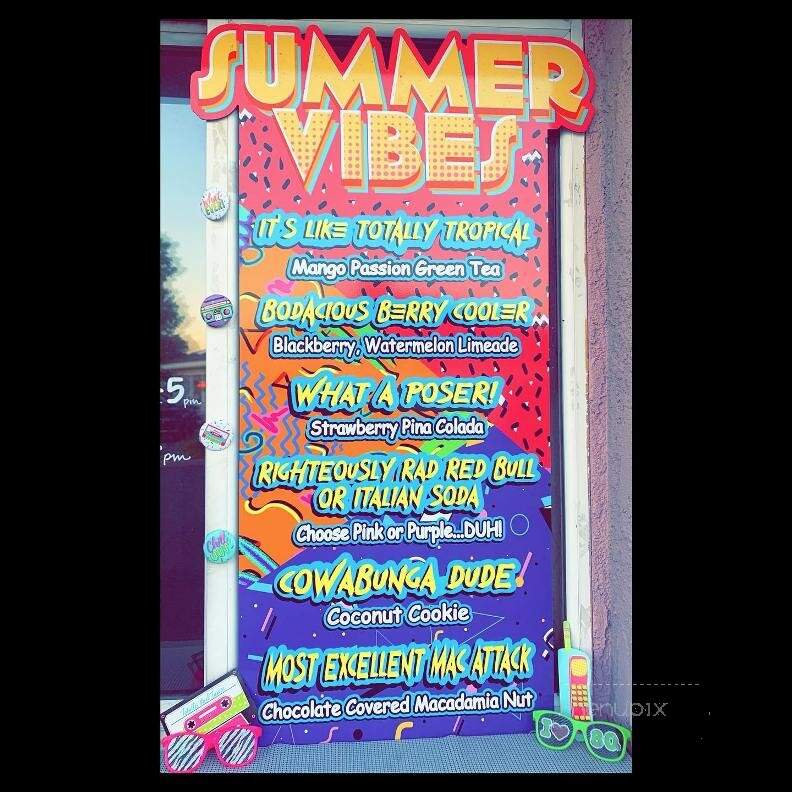 SUMMER
VIBES
IT'S LIKE TOTALLY TROPICAL
Mango Passion Green Tea
BODACIOUS BERRY COOLER
Blackberry, Watermelon Limeade
WHAT A POSER!
Strawberry Pina Colada
RIGHTEOUSLY RAD RED BULL
OR ITALIAN SODA
Choose Pink or Purple...DUH!
COWABUNGA DUDE
Coconut Cookie
MOST EXCELLENT MAC ATTACK
Chocolate Covered Macadamia Nut
-5 pm
pm
I 80